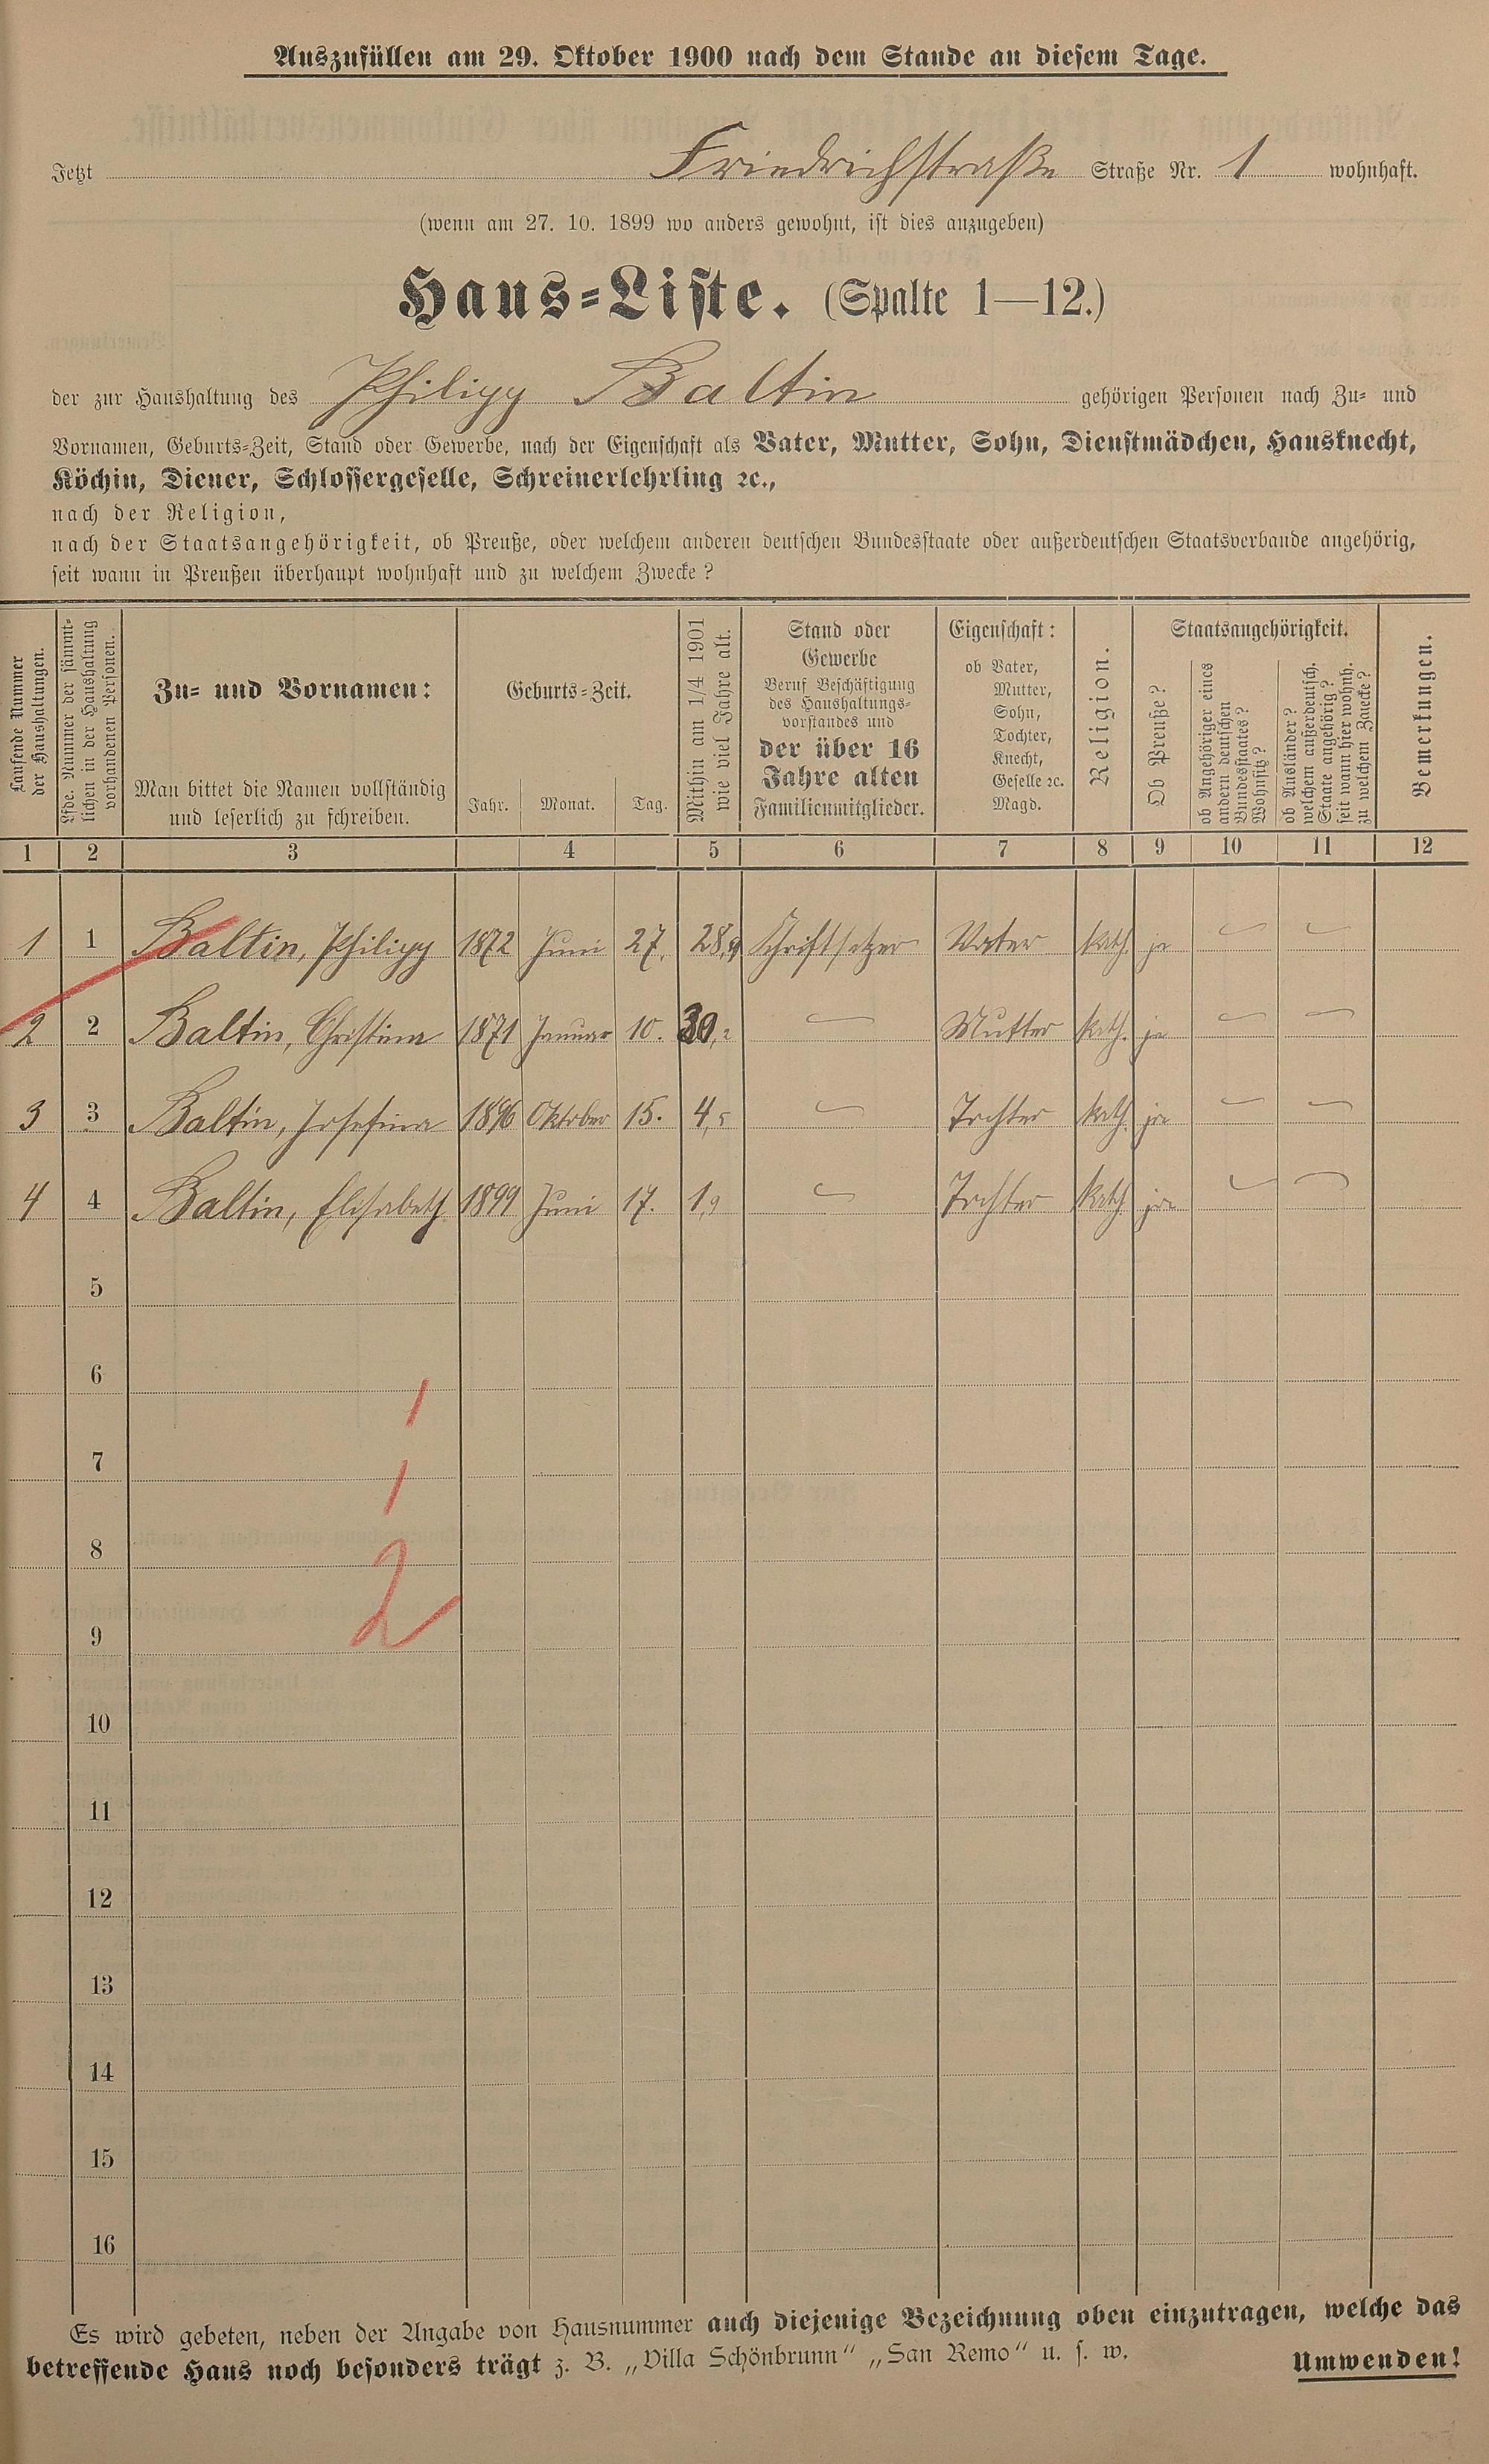 Auszufüllen am 29. Oktober 1900 nach dem Stande an diesem Tage.
Jetzt Friedrichstraße Straße Nr. 1 wohnhaft.
(wenn am 27. 10. 1899 wo anders gewohnt, ist dies anzugeben)
Haus-Liste. (Spalte 1—12.)
der zur Haushaltung des Philipp Baltin gehörigen Personen nach Zu- und
Vornamen, Geburts-Zeit, Stand oder Gewerbe, nach der Eigenschaft als Vater, Mutter, Sohn, Dienstmädchen, Hausknecht,
Köchin, Diener, Schlossergeselle, Schreinerlehrling ꝛc.,
nach der Religion,
nach der Staatsangehörigkeit, ob Preuße, oder welchem anderen deutschen Bundesstaate oder außerdeutschen Staatsverbande angehörig,
seit wann in Preußen überhaupt wohnhaft und zu welchem Zwecke?
Laufende Nummer
der Haushaltungen.
Lfde. Nummer der sämmt-
lichen in der Haushaltung
vorhandenen Personen.
Zu- und Vornamen:
Man bittet die Namen vollständig
und leserlich zu schreiben.
Geburts-Zeit.
Jahr. Monat. Tag.
Mithin am 1/4 1901
wie viel Jahre alt.
Stand oder
Gewerbe
Beruf Beschäftigung
des Haushaltungs-
vorstandes und
der über 16
Jahre alten
Familienmitglieder.
Eigenschaft:
ob Vater,
Mutter,
Sohn,
Tochter,
Knecht,
Geselle ꝛc.
Magd.
Religion.
Staatsangehörigkeit.
Ob Preuße?
ob Angehöriger eines
andern deutschen
Bundesstaates?
Wohnsitz?
ob Ausländer?
welchem außerdeutsch.
Staate angehörig?
seit wann hier wohnh.
zu welchem Zwecke?
Bemerkungen.
1 2 3 4 5 6 7 8 9 10 11 12
1 1 Baltin, Philipp 1872 Juni 27. 28,9 Schriftsetzer Vater kath. ja
2 2 Baltin, Christina 1871 Januar 10. 30,2 Mutter kath. ja
3 3 Baltin, Josefina 1896 Oktober 15. 4,5 Tochter kath. ja
4 4 Baltin, Elisabeth 1899 Juni 17. 1,9 Tochter kath. ja
5
6
1
7
1
8
2
9
10
11
12
13
14
15
16
Es wird gebeten, neben der Angabe von Hausnummer auch diejenige Bezeichnung oben einzutragen, welche das
betreffende Haus noch besonders trägt z. B. „Villa Schönbrunn“ „San Remo“ u. s. w. Umwenden!